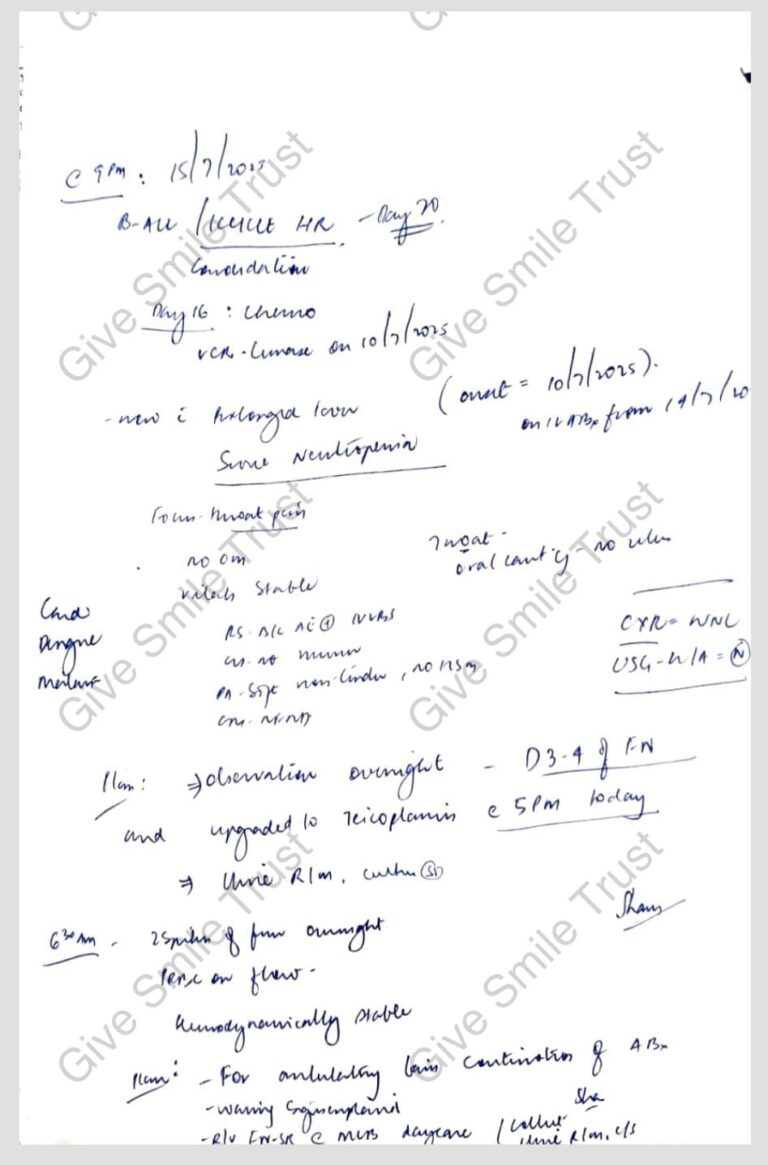 @ 9 PM : 15/7/2025
B-ALL / ICICLE HR - Day 20
Consolidation
Day 16 : Chemo
VCR - on 10/7/2025
- now c̄ Prolonged fever (onset = 10/7/2025).
on IV ABx from 14/7/20
Severe Neutropenia
Focus - throat pain
Throat -
no om
oral cavity - no ulcer
vitals stable
Dengue
RS - B/L AE ⊕ NVBS
CXR = WNL
CVS - no murmur
USG - W/A = Ⓝ
PA - Soft non-tender, no HSM
CNS - NFND
Plan: ⇒ observation overnight - D3-4 of FN
and upgraded to Teicoplanin @ 5 PM today
⇒ Urine R/m, culture
6:30 AM - 2 spikes of fever overnight
PRBC on flow -
Hemodynamically stable
Plan: - For ambulatory basis continuation of ABx
- warning signs explained
- R/V @ daycare / collect
urine R/m, c/s
Give Smile Trust
Give Smile Trust
Give Smile Trust
Give Smile Trust
Give Smile Trust
Give Smile Trust